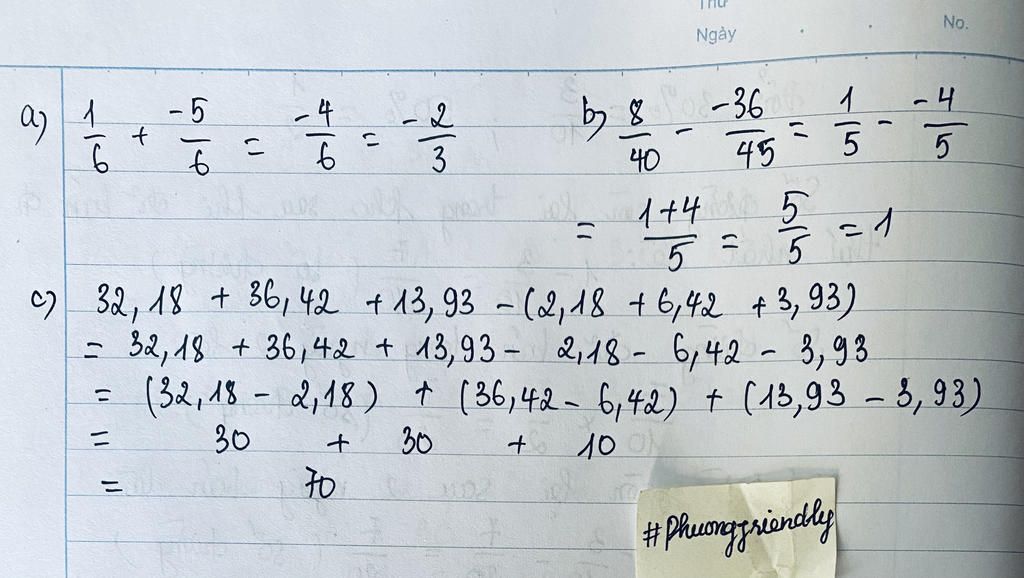 Thứ
Ngày No.
a) 1/6 + -5/6 = -4/6 = -2/3 b) 8/40 - -36/45 = 1/5 - -4/5
= 1+4/5 = 5/5 = 1
c) 32,18 + 36,42 + 13,93 - (2,18 + 6,42 + 3,93)
= 32,18 + 36,42 + 13,93 - 2,18 - 6,42 - 3,93
= (32,18 - 2,18) + (36,42 - 6,42) + (13,93 - 3,93)
= 30 + 30 + 10
= 70
#Phuongfriendly